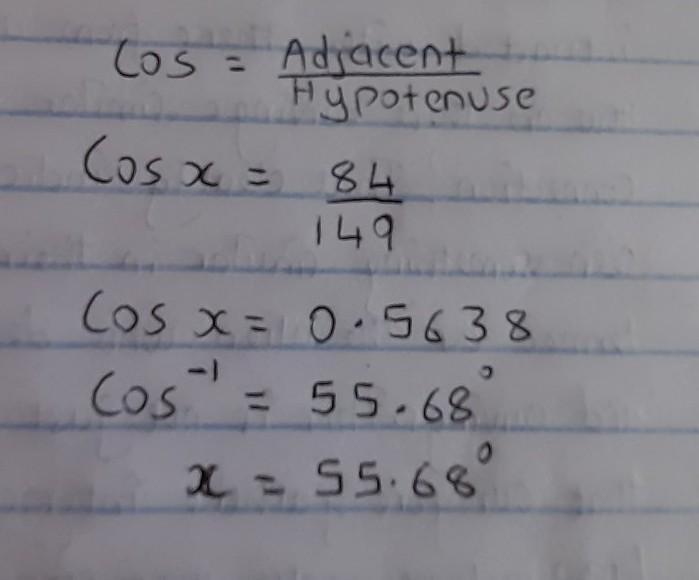 Cos = Adjacent / Hypotenuse
Cos x = 84 / 149
Cos x = 0.5638
Cos⁻¹ = 55.68°
x = 55.68°